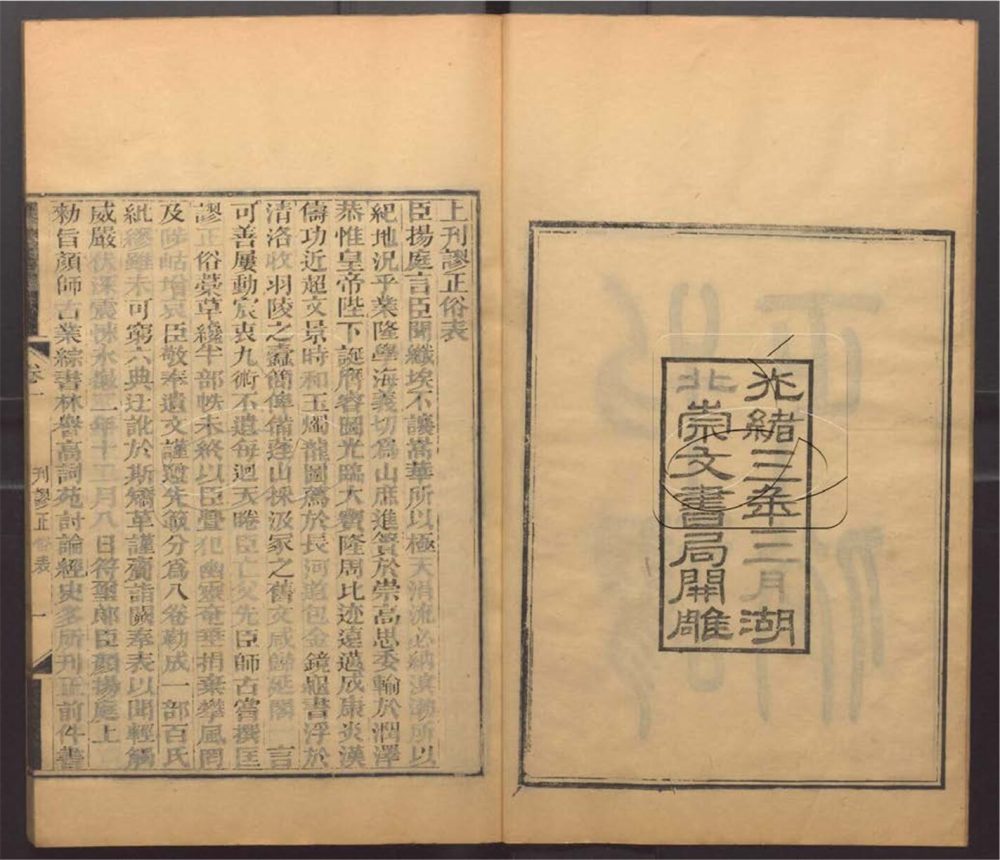 光緒三年三月湖
北崇文書局開雕
上刊謬正俗表
臣揚庭言臣聞纖埃不讓嵩華所以極天涓流必納溟渤所以
紀地況乎業隆學海義切爲山庶進簣於崇高思委輸於潤澤
恭惟皇帝陛下誕膺睿圖光臨大寶隆周比迹遠邁成康炎漢
儔功近超文景時和玉燭龍圖薦於長河道包金鏡龜書浮於
清洛收羽陵之蠹簡俾備蓬山採汲冢之舊文咸歸延閣 言
可善屢動宸衷九術不遺每迴天睠臣亡父先臣師古嘗撰匡
謬正俗藁草纔半部帙未終以臣舋犯幽靈奄垂捐棄攀風罔
及陟岵增哀臣敬奉遺文謹遵先範分爲八卷勒成一部百氏
紕繆雖未可窮六典迂訛於斯矯革謹齎詣闕奉表以聞輕觸
威嚴伏深震悚永徽二年十二月八日符璽郎臣顏揚庭上
勑旨顏師古業綜書林譽高詞苑討論經史多所刊正前件書
卷一
刊謬正俗表
一